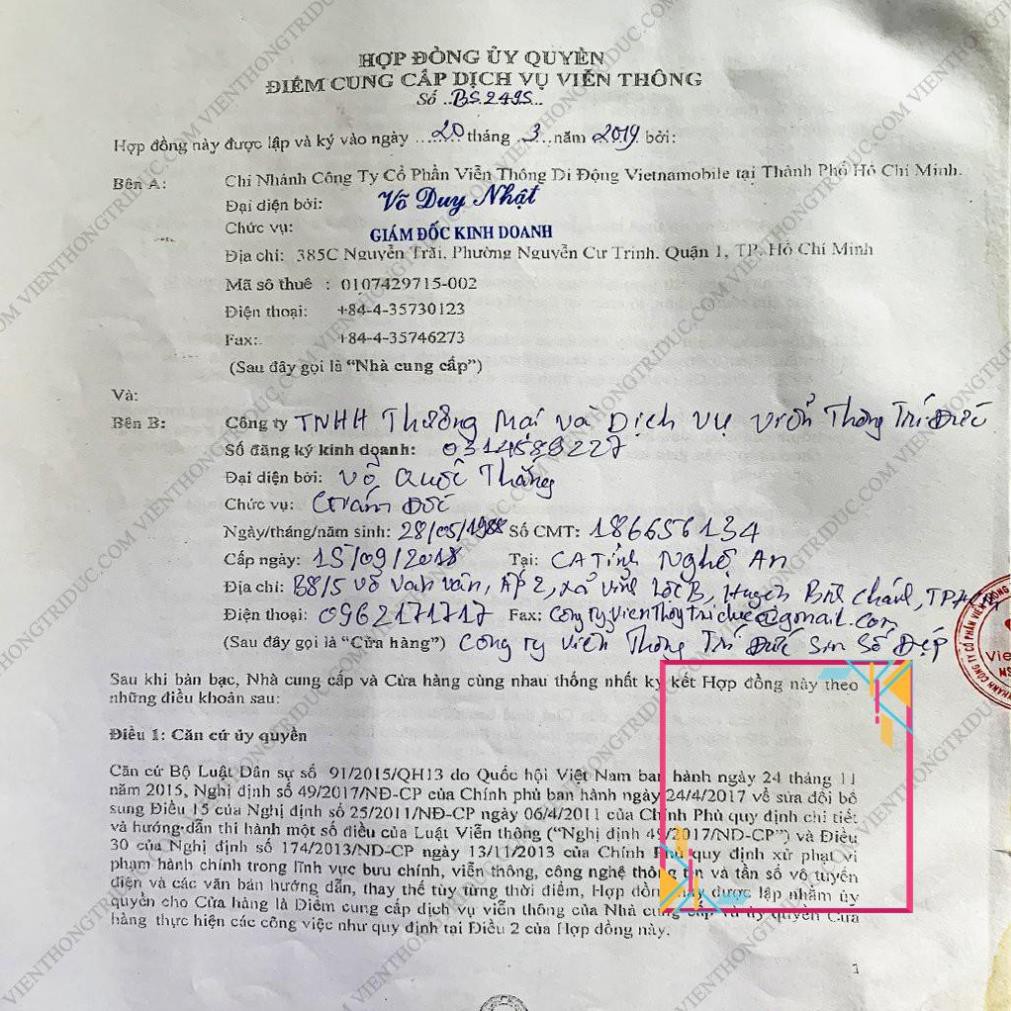 HỢP ĐỒNG ỦY QUYỀN
ĐIỂM CUNG CẤP DỊCH VỤ VIỄN THÔNG
Số ..BS2495...
Hợp đồng này được lập và ký vào ngày .....20 tháng ..3...năm 2019. bởi:
Bên A: Chi Nhánh Công Ty Cổ Phần Viễn Thông Di Động Vietnamobile tại Thành Phố Hồ Chí Minh.
Đại diện bởi: Võ Duy Nhật
Chức vụ: GIÁM ĐỐC KINH DOANH
Địa chỉ: 385C Nguyễn Trãi, Phường Nguyễn Cư Trinh. Quận 1, TP. Hồ Chí Minh
Mã số thuê : 0107429715-002
Điện thoại: +84-4-35730123
Fax: +84-4-35746273
(Sau đây gọi là “Nhà cung cấp”)
Và:
Bên B: Công ty TNHH Thương Mại và Dịch Vụ Viễn Thông Trí Đức
Số đăng ký kinh doanh: 0314589227
Đại diện bởi: Võ Quốc Thắng
Chức vụ: Giám Đốc
Ngày/tháng/năm sinh: 28/05/1988 Số CMT: 186656134
Cấp ngày: 15/09/2018 Tại: CA Tỉnh Nghệ An
Địa chỉ: B8/5 Võ Văn Vân, Ấp 2, xã Vĩnh Lộc B, Huyện Bình Chánh, TPHCM
Điện thoại: 0962171717 Fax: CongtyvienThongTriduc@gmail.com
(Sau đây gọi là “Cửa hàng”) Công ty Viễn Thông Trí Đức Sim Số Đẹp
Sau khi bàn bạc, Nhà cung cấp và Cửa hàng cùng nhau thống nhất ký kết Hợp đồng này theo
những điều khoản sau:
Điều 1: Căn cứ ủy quyền
Căn cứ Bộ Luật Dân sự số 91/2015/QH13 do Quốc hội Việt Nam ban hành ngày 24 tháng 11
năm 2015, Nghị định số 49/2017/NĐ-CP của Chính phủ ban hành ngày 24/4/2017 về sửa đổi bổ
sung Điều 15 của Nghị định số 25/2011/NĐ-CP ngày 06/4/2011 của Chính Phủ quy định chi tiết
và hướng dẫn thi hành một số điều của Luật Viễn thông (“Nghị định 49/2017/NĐ-CP”) và Điều
30 của Nghị định số 174/2013/NĐ-CP ngày 13/11/2013 của Chính Phủ quy định xử phạt vi
phạm hành chính trong lĩnh vực bưu chính, viễn thông, công nghệ thông tin và tần số vô tuyến
điện và các văn bản hướng dẫn, thay thế tùy từng thời điểm, Hợp đồng này được lập nhằm ủy
quyền cho Cửa hàng là Điểm cung cấp dịch vụ viễn thông của Nhà cung cấp và ủy quyền Cửa
hàng thực hiện các công việc như quy định tại Điều 2 của Hợp đồng này.
1
VIENTHONGTRIDUC.COM